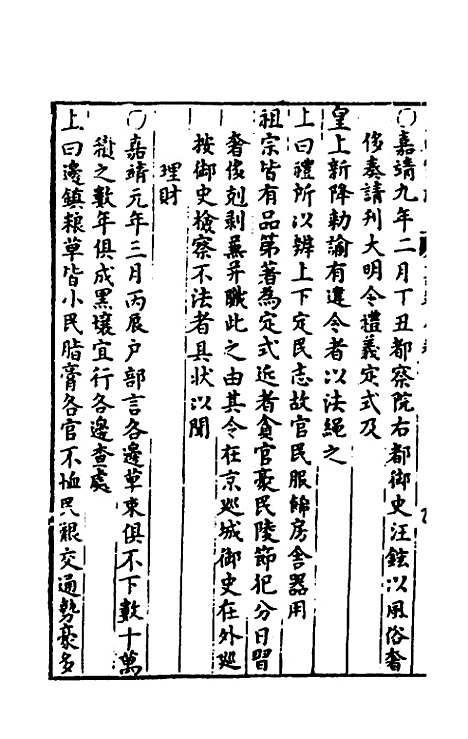 〇嘉靖九年二月丁丑都察院右都御史汪鋐以風俗奢
侈奏請刊大明令禮義定式及
皇上新降勅諭有違令者以法繩之
上曰禮所以辨上下定民志故官民服餙房舍器用
祖宗皆有品第著為定式近者貪官豪民陵節犯分日習
奢侈剋剥蒹并職此之由其令在京廵城御史在外廵
按御史檢察不法者具狀以聞
理財
〇嘉靖元年三月丙辰户部言各邊草束俱不下數十萬
之數年俱成黑壤宜行各邊查處
上曰邊鎮粮草皆小民脂膏各官不恤民艱交通勢豪多